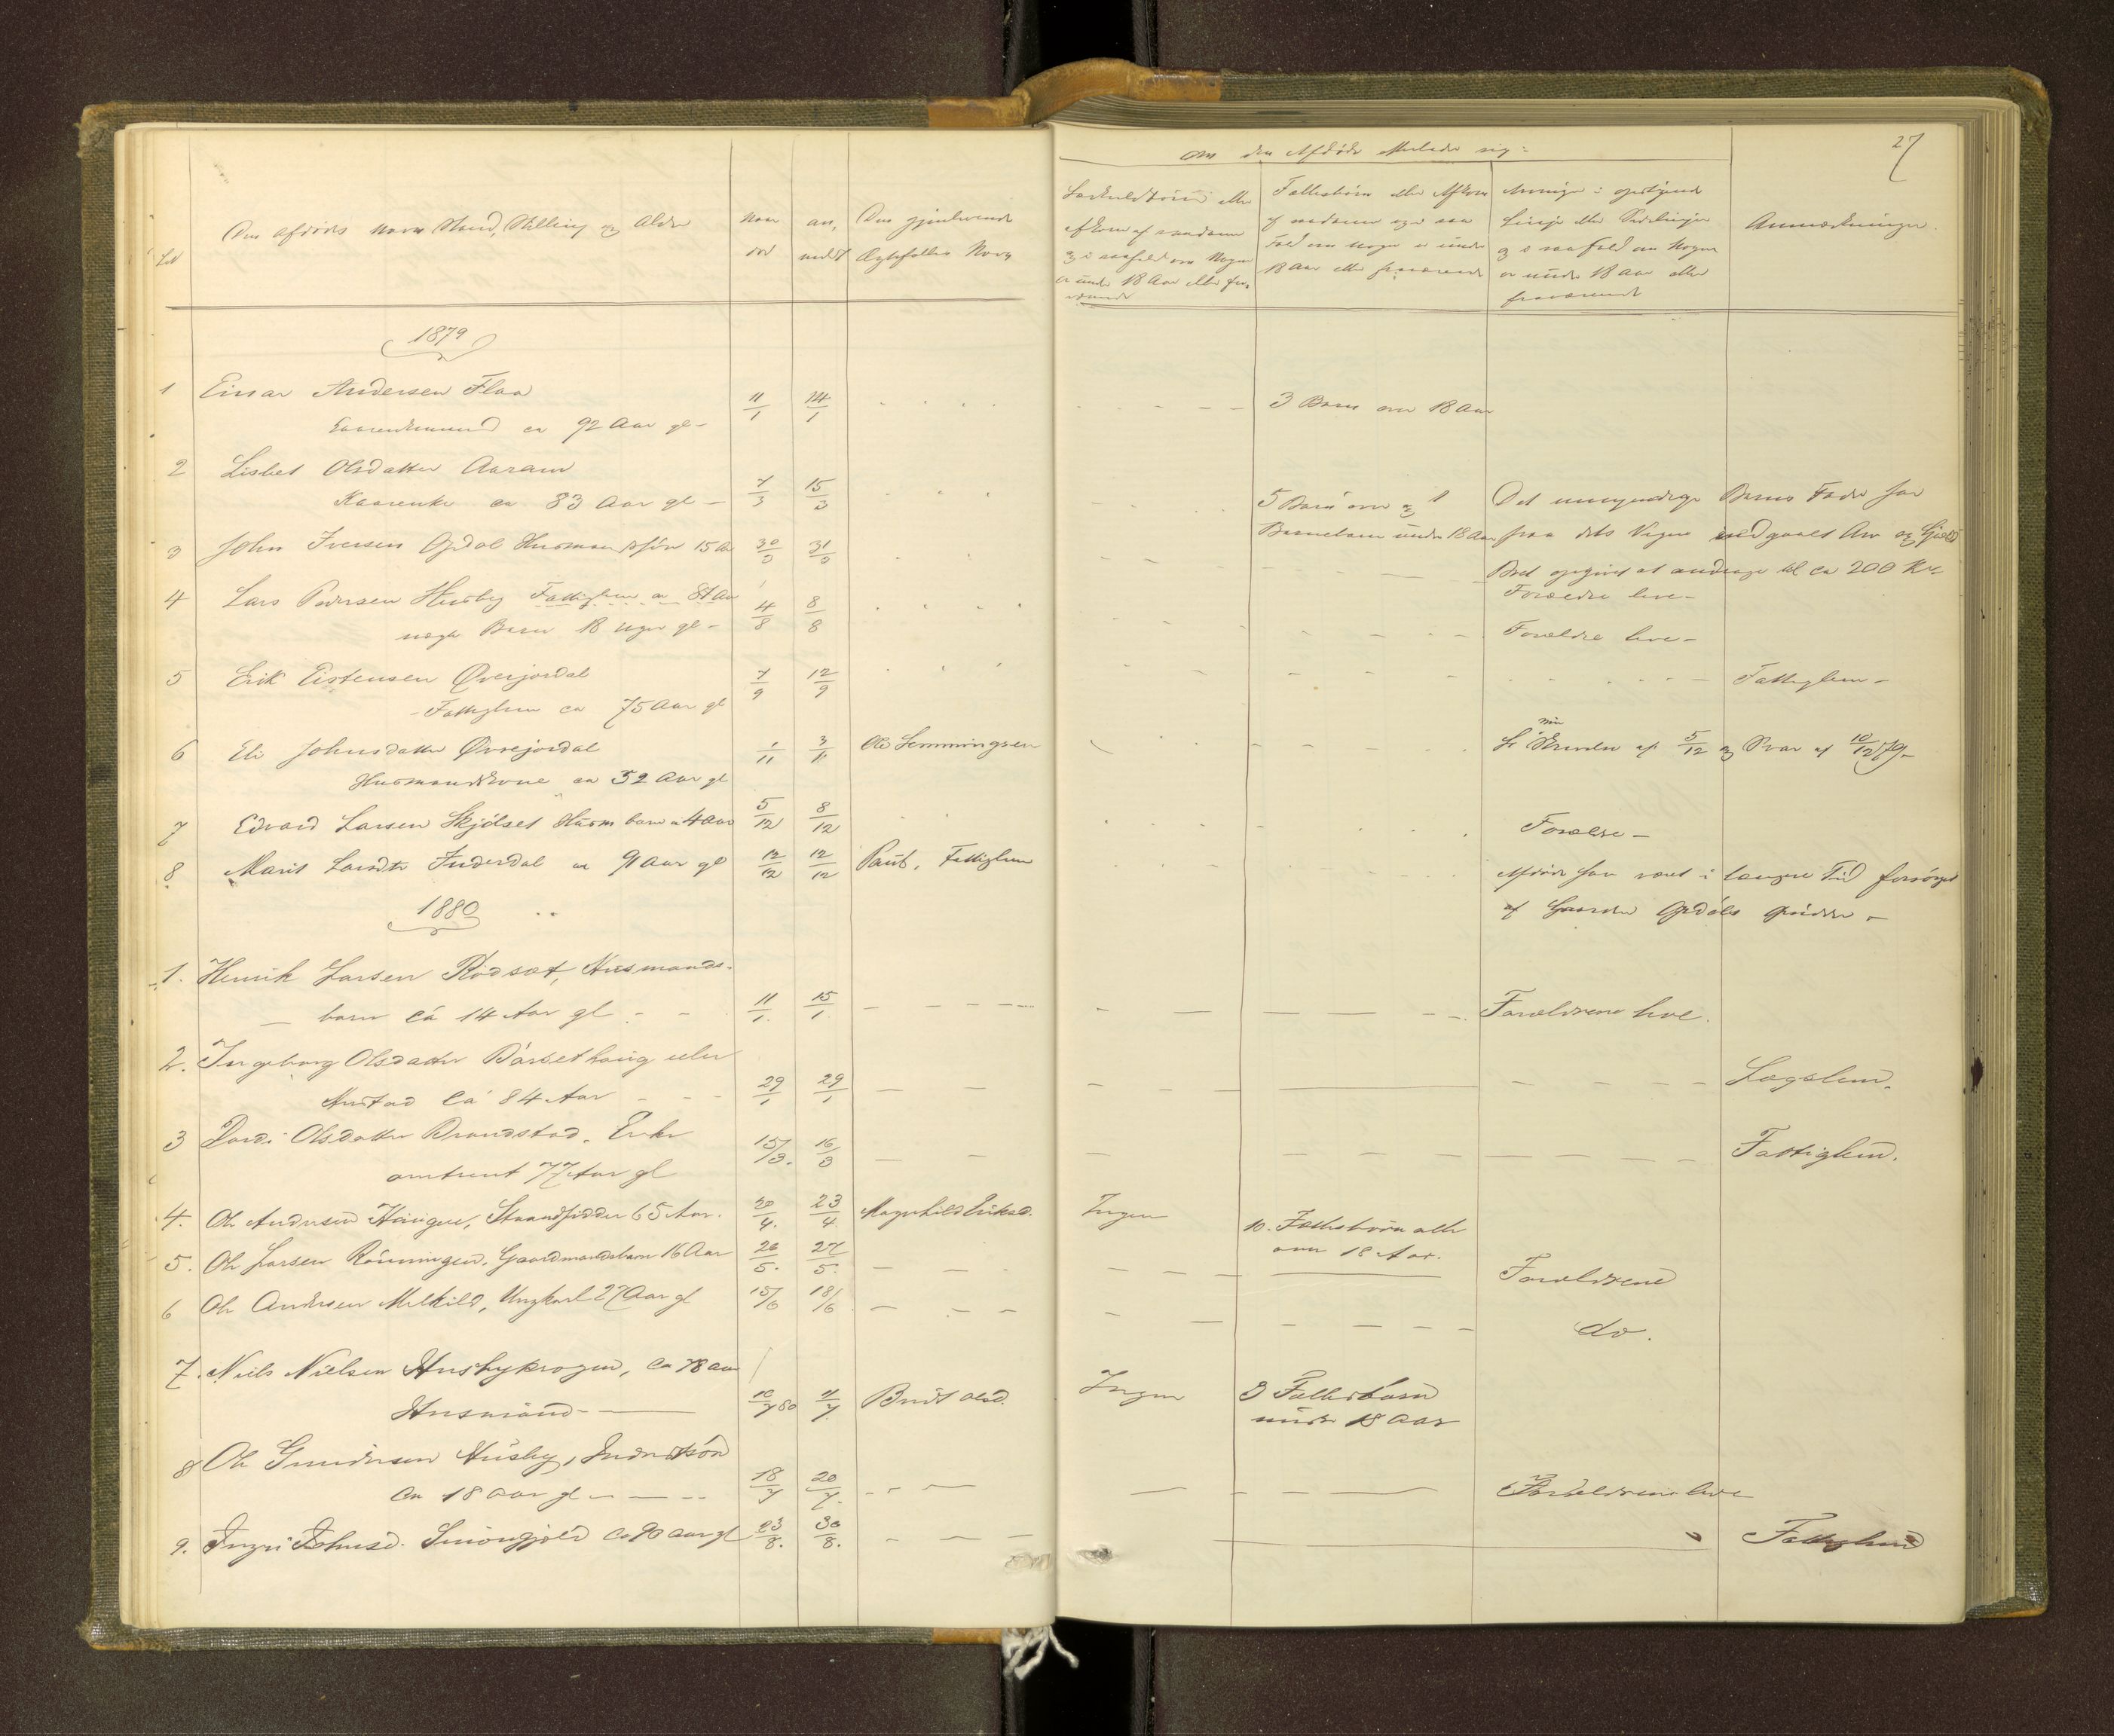 27
Om den Afdøde efterlader sig:
Lod
Den afdødes Navn Stand, Stilling og Alder
Naar
død
an,
meldt
Den gjenlevende
Ægtefælles Navn
Særkuldbörn eller
Afkom af saadanne
og i saafald om Nogen
er under 18 Aar eller fra-
værende
Fællesbørn eller Afkom
af saadanne og i saa
Fald om nogen er under
18 Aar eller fraværende
Arvinger i opstigende
Linje eller Sidelinjer
og i saafald om Nogen
er under 18 Aar eller
fraværende
Anmærkninger.
1879
1 Einar Andersen Flaa
ca 92 Aar gl - 11/1 14/1 3 Børn over 18 Aar
2 Lisbet Olsdatter Aaram
Kaarenke ca 83 Aar gl - 7/3 15/3 5 Børn over og 1 Det umyndige Barns Fader har
Barnebarn under 18 Aar paa dets Vegne vedgaaet Arv og Gjæld
3 John Iversen Opdøl Husmandssøn 15 Aar 30/3 31/3
Boet opgivet at andrage til ca 200 Kr
Forældre leve -
4 Lars Pedersen Husby Fattiglem ca 81 Aar
Barn 18 uger gl - 4/8 8/8 Forældre leve -
5 Erik Eistensen Øverjordal
Fattiglem ca 75 Aar gl 7/9 12/9 Fattiglem -
6 Eli Johnsdatter Øvrejordal
Husmandskone ca 52 Aar gl 1/11 3/11 Ole Lemmingsen Se min Skrivelse af 5/12 og Svar af 10/12 79 -
7 Edvard Larsen Skjølset Husm barn ca 4 Aar 5/12 8/12 Forældre -
8 Marit Larsdtr Inderdal ca 91 Aar gl 12/12 12/12 Fattiglem Afdøde har været i længere Tid forsørget
af Gaarden Opdøls
1880
1. Henrik Larsen Rødsæt, Husmands-
barn ca 14 Aar gl - - 11/1. 15/1. Forældrene leve.
2. Ingeborg Olsdatter Bårsethaug eller
Austad ca 84 Aar - - - 29/1 29/1 Lægslem.
3 Dordi Olsdatter Brandstad. Enke
omtrent 77 Aar gl 15/3. 16/3 Fattiglem.
4. Ole Andersen Haugen, Strandsidder 65 Aar. 20/4. 23/4 Magnhild Eriksd. Ingen 10. Fællesbørn alle
over 18 Aar.
5. Ole Larsen Rönningen, Gaardmandsbarn 16 Aar 26/5. 27/5. Forældrene
6 Ole Andersen Melkild, Ungkarl 27 Aar gl 15/6 18/6 do.
7. Niels Nielsen Husbykrogen, ca 78 aar
Husmand - 10/7 80 11/7 Berit Olsd. Ingen 3 Fællesbørn
under 18 Aar
8 Ole Gundersen Husby, Inderstsøn
ca 18 aar gl - 18/7 20/7. Forældrene leve
9. Ingri Johnsd. Smöngjøld ca 90 aar gl 23/8. 30/8. Fattiglem